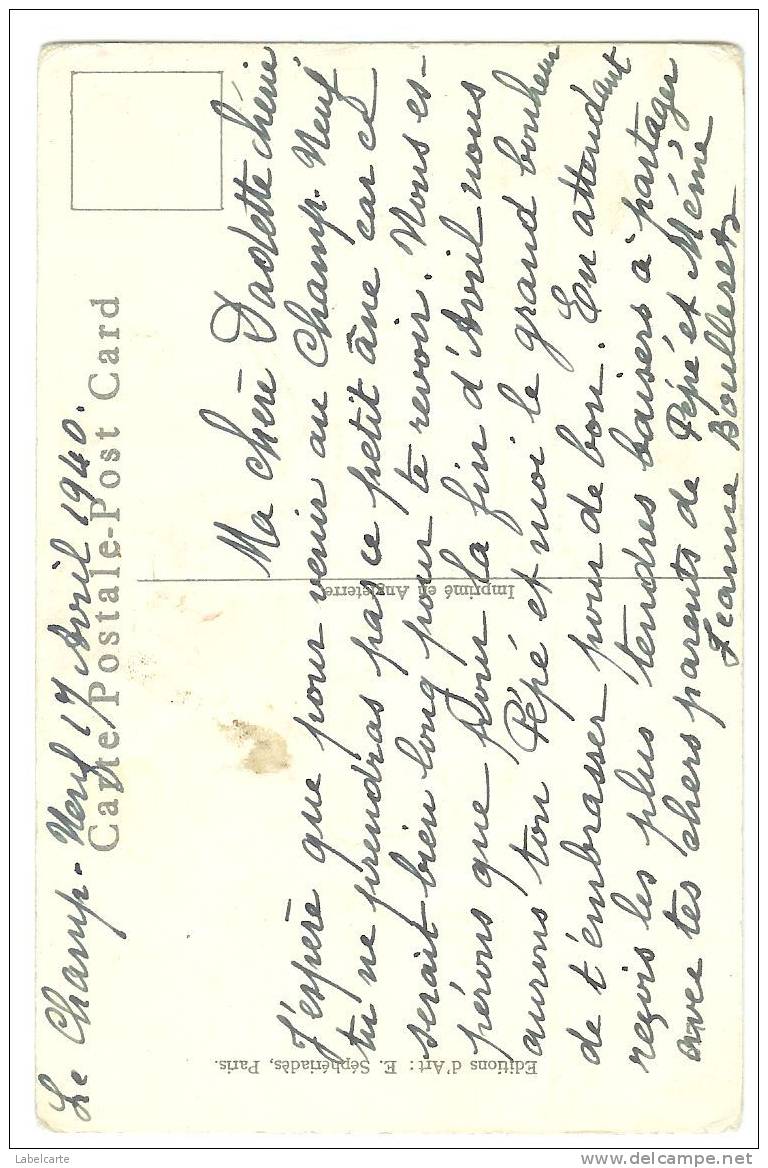 Le Champ-Neuf 17 Avril 1940.
Carte Postale-Post Card
Ma chère Dadette chérie
J'espère que pour venir au Champ-Neuf
tu ne prendras pas ce petit âne car ce
serait bien long pour te revoir. Nous es-
pérons que pour la fin d'Avril nous
aurons ton Pépé et moi le grand bonheur
de t'embrasser pour de bon. En attendant
reçois les plus tendres baisers à partager
avec tes chers parents de Pépé et Mémé
Jeanne
Imprimé en Angleterre
Editions d'Art : E. Séphériadès, Paris.
Labelcarte
www.delcampe.net